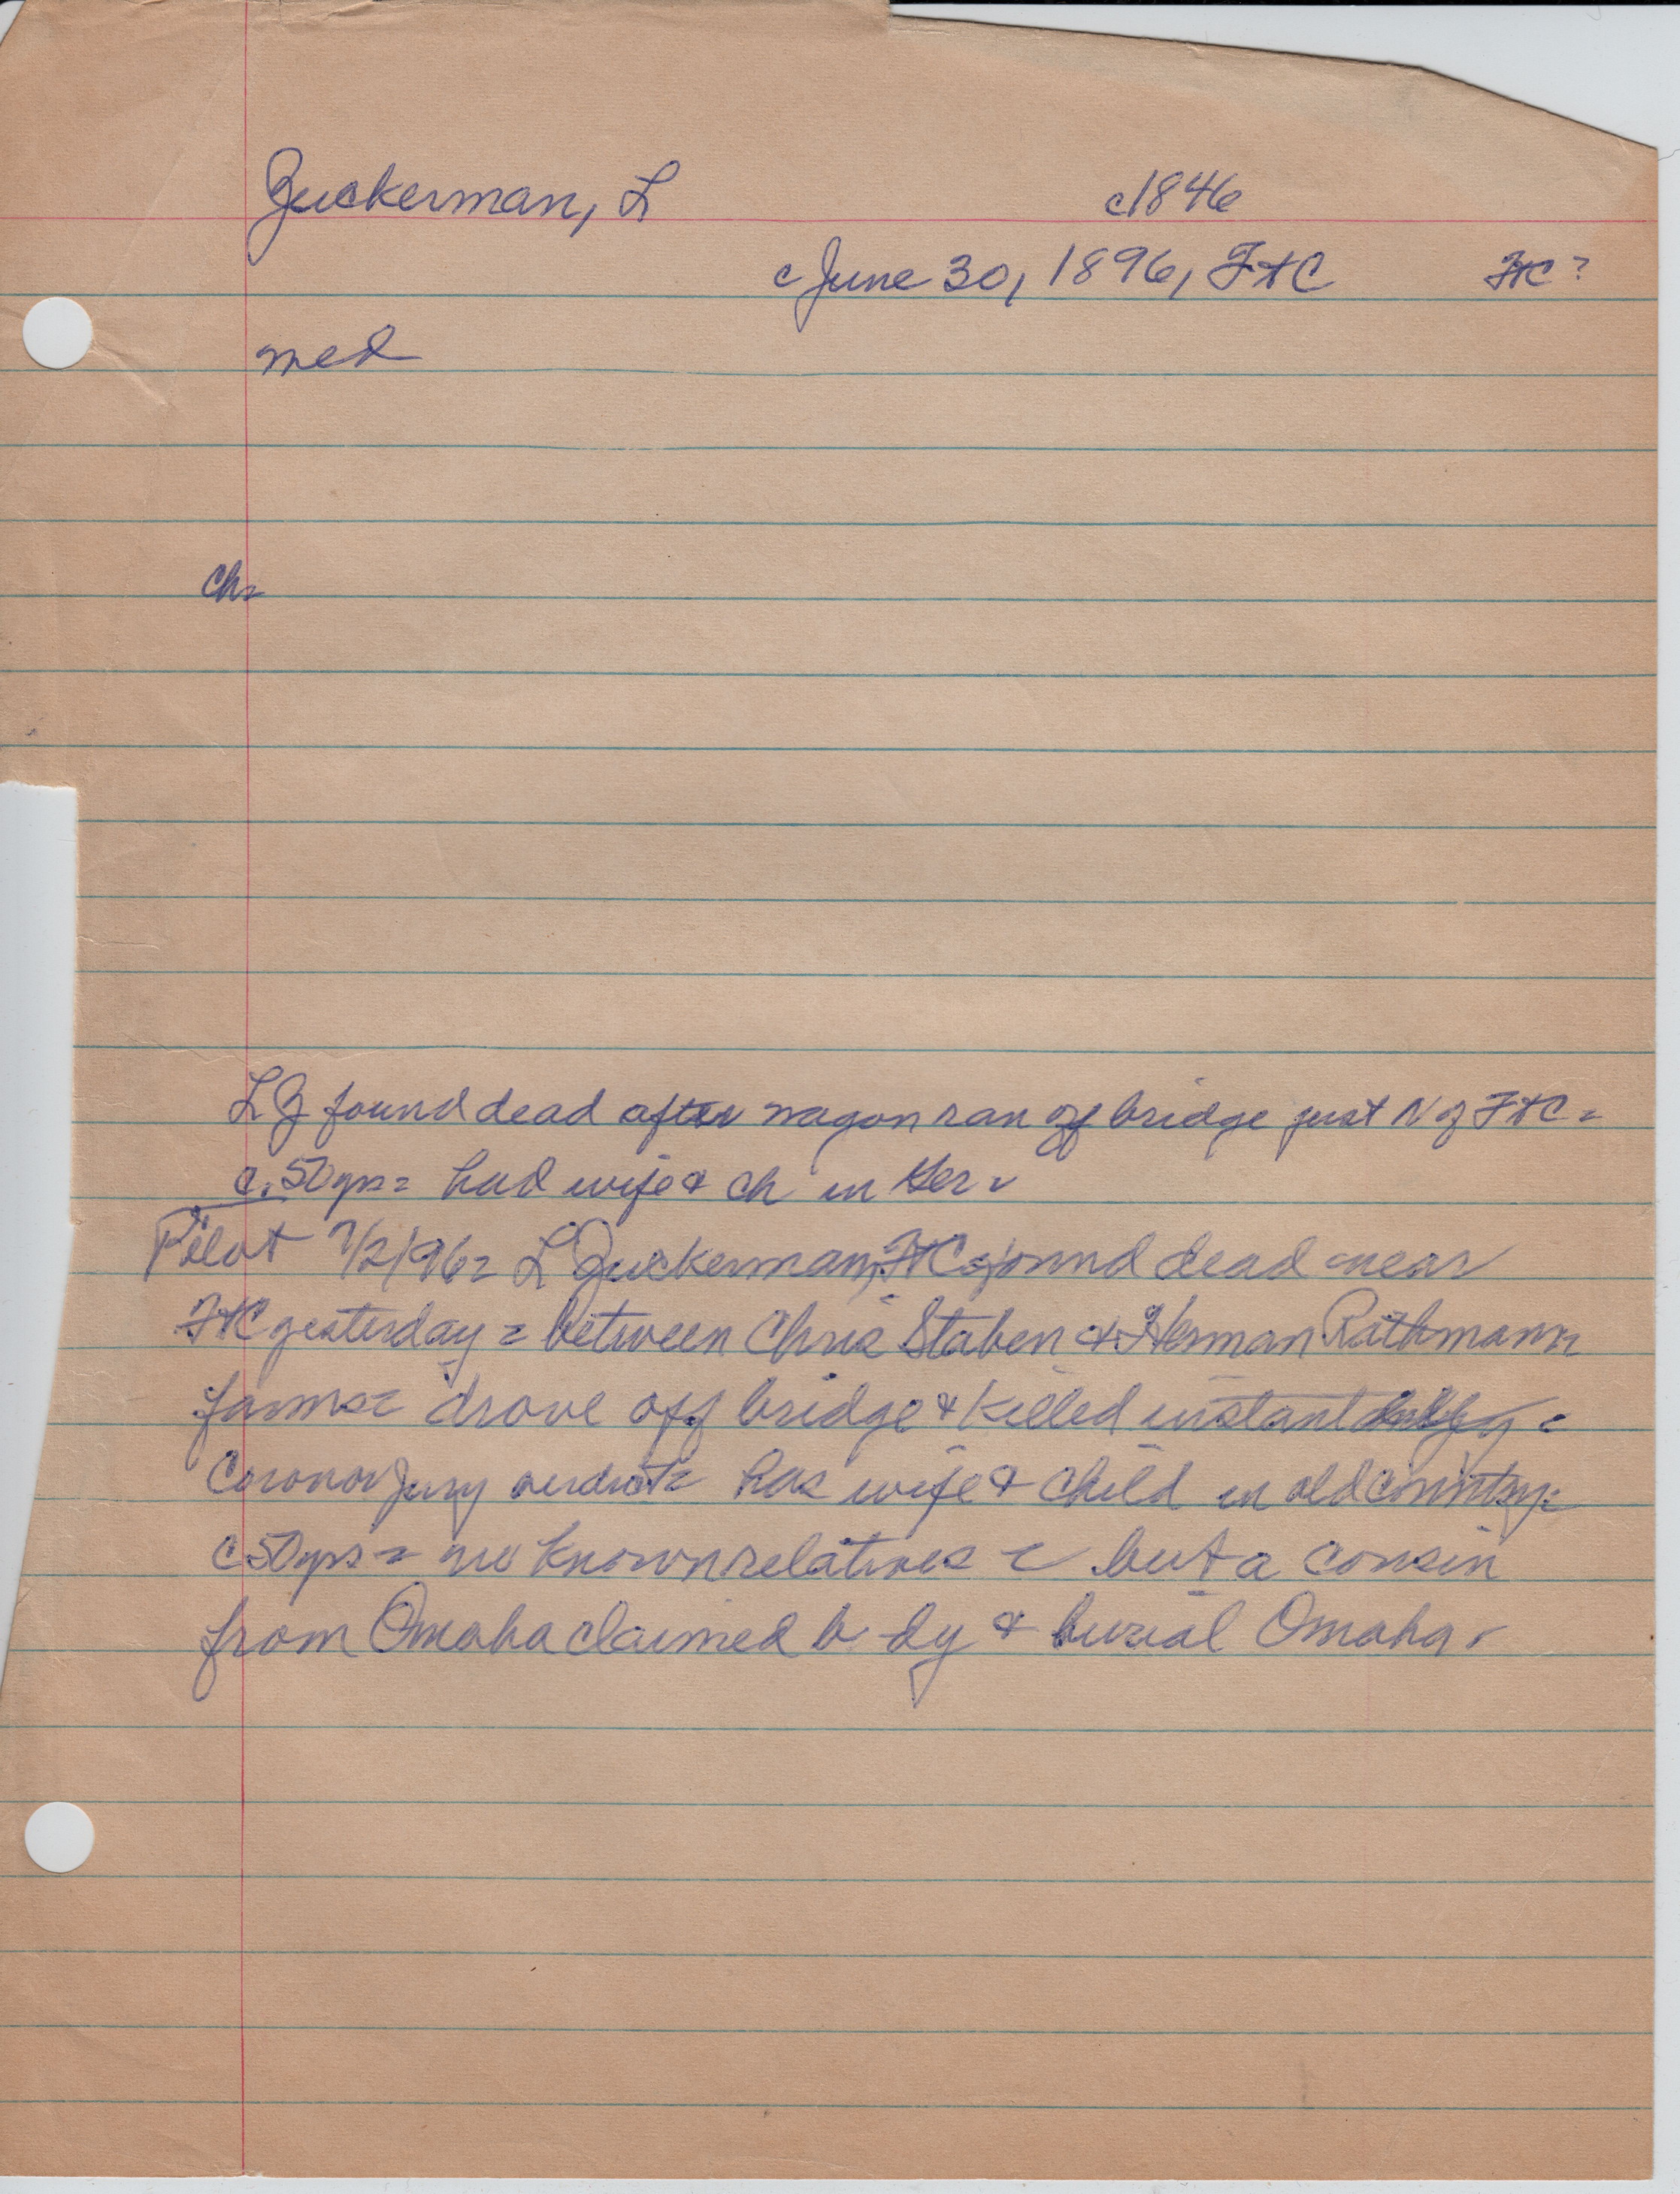 Zuckerman, L c1846
c June 30, 1896, FtC FtC?
med
ch=
L Z found dead after wagon ran off bridge just N of FtC =
c. 50 yrs = had wife & ch in Ger =
Pilot 7/2/96 = L Zuckerman, FtC = found dead near
FtC yesterday = between Chris Staben & Herman Rathmann
farms = drove off bridge & killed instantly =
Coronor Jury verdict = has wife & child in old country =
c 50 yrs = no known relatives = but a cousin
from Omaha claimed b dy & burial Omaha =